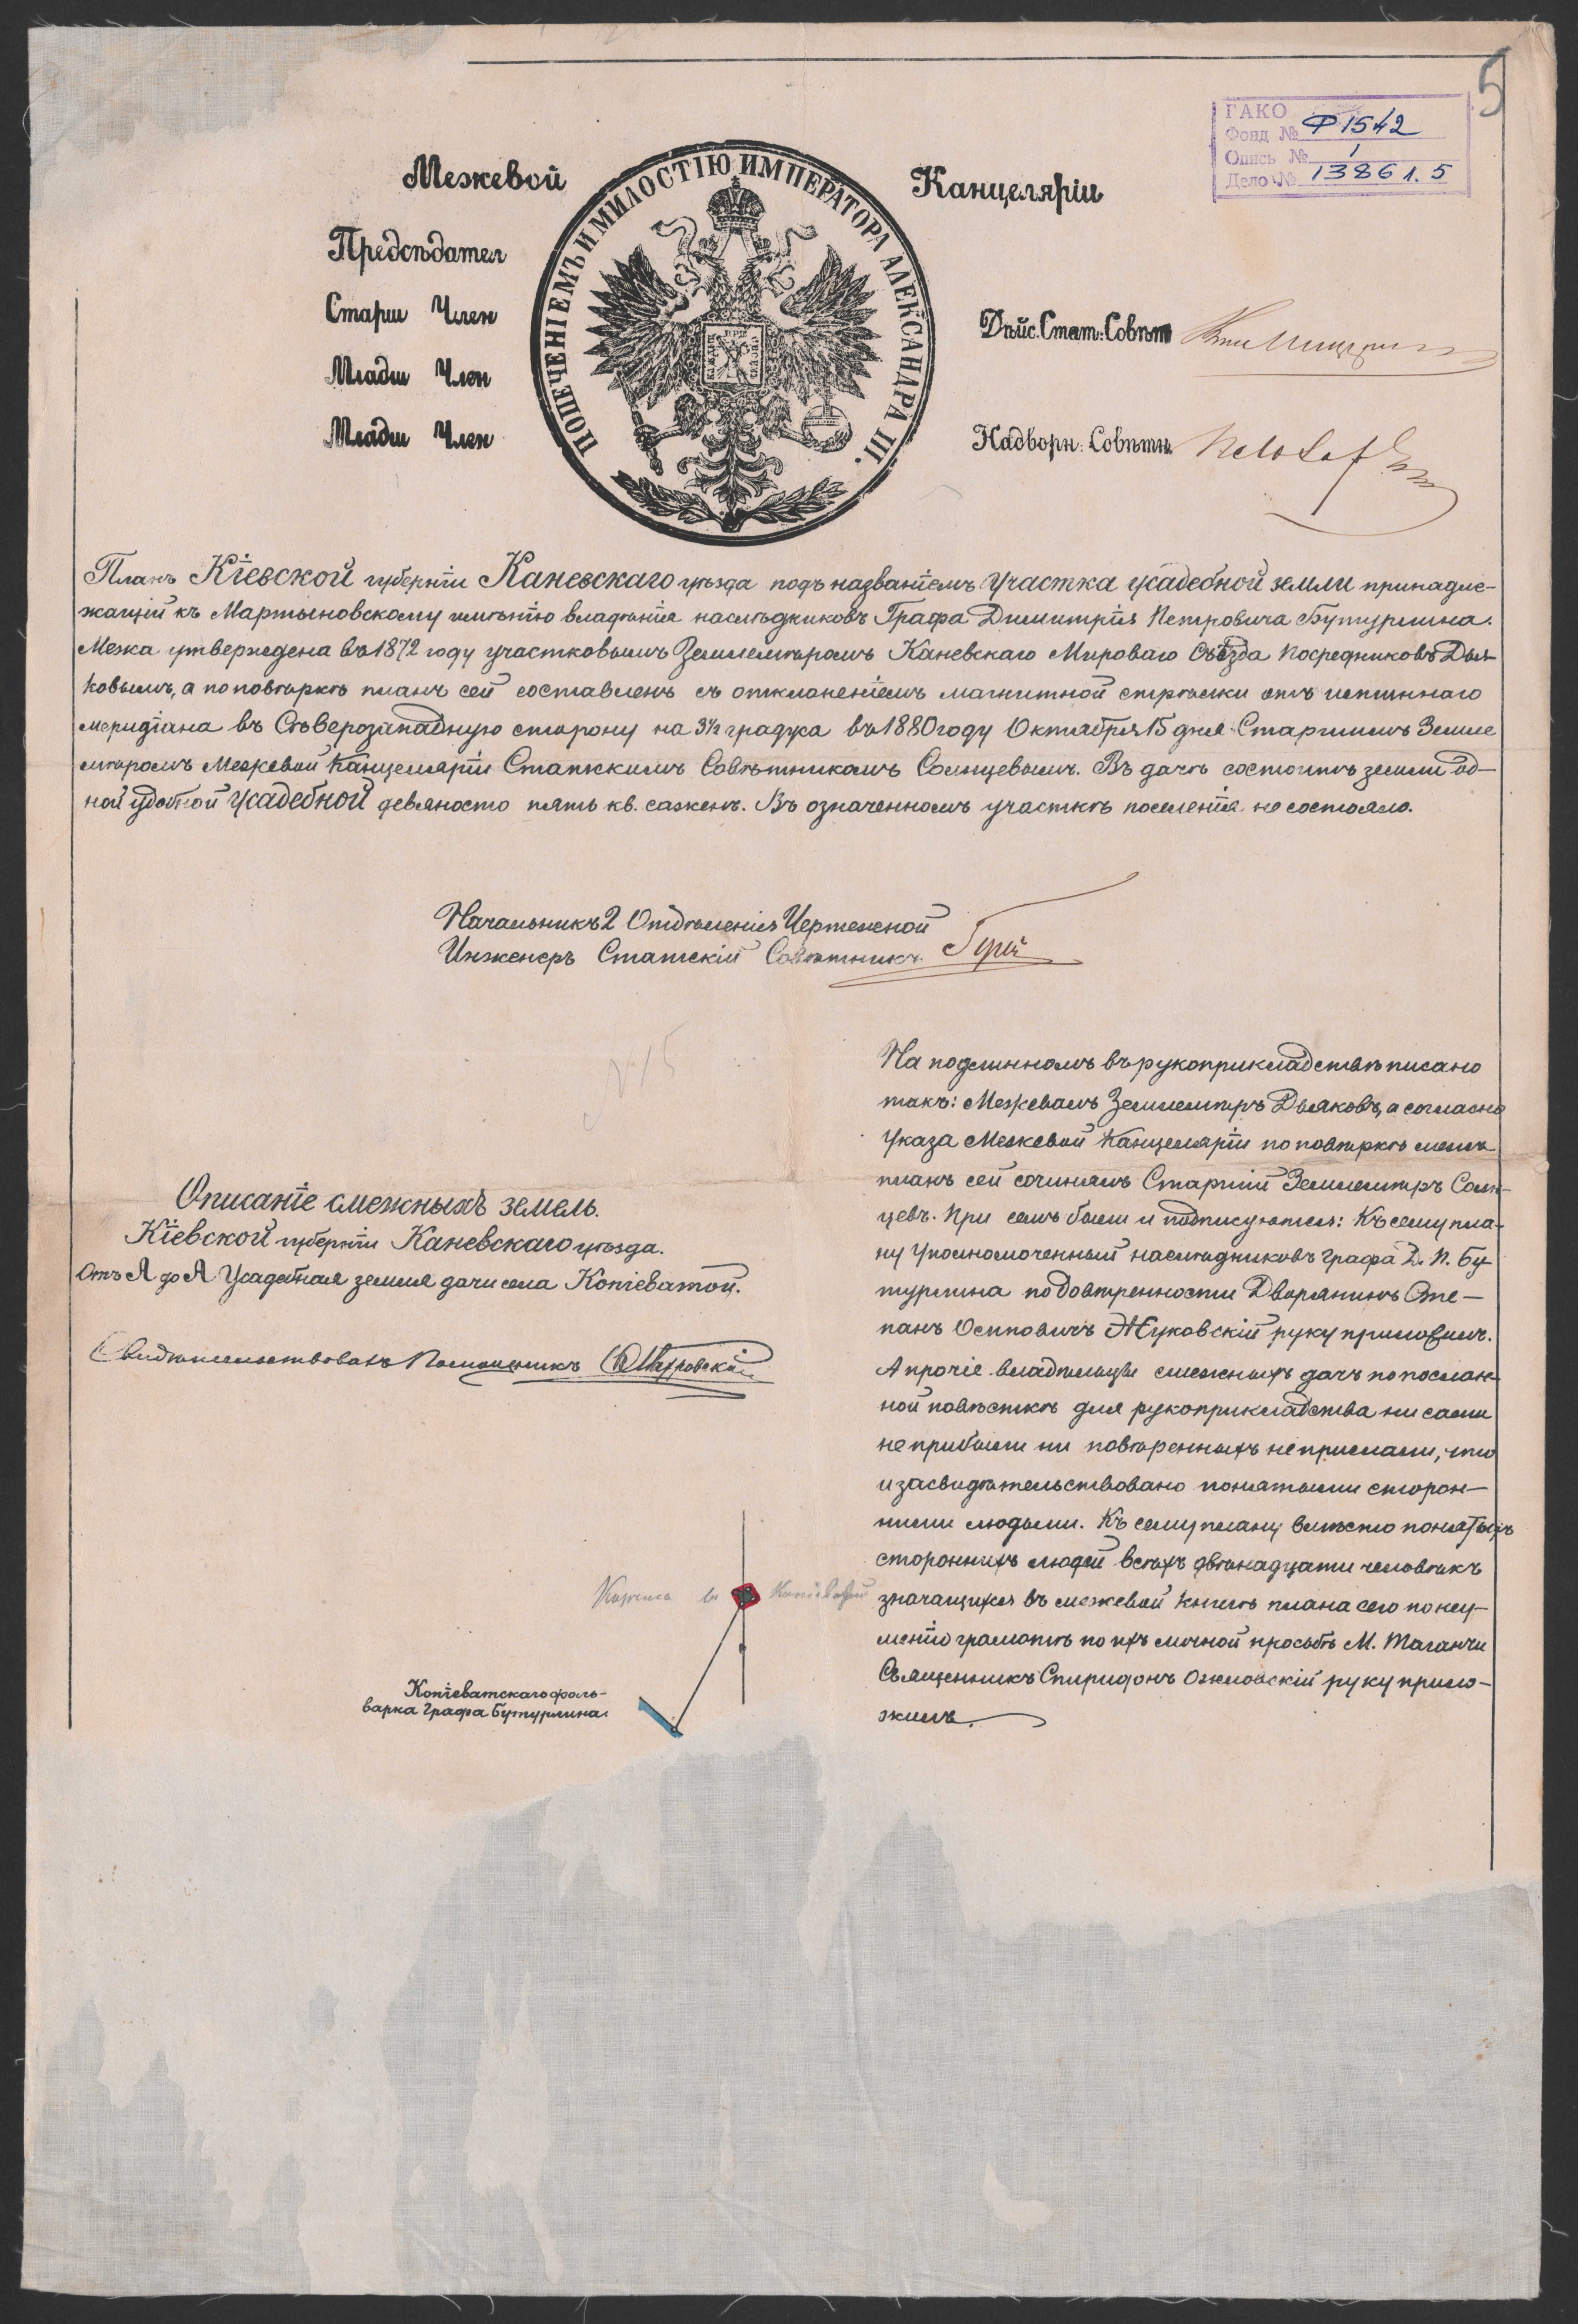 5
ГАКО
Фонд № Ф1542
Опись № 1
Дело № 1386 л. 5
Межевой Канцеляріи
ПОПЕЧЕНІЕМЪ И МИЛОСТІЮ ИМПЕРАТОРА АЛЕКСАНДРА III.
Предсѣдател
Старш Член
Младш Член
Младш Член
Дѣйс. Стат: Совѣт
Надворн: Совѣтн
Планъ Кіевской губерніи Каневскаго уѣзда подъ названіемъ Участка усадебной земли принадле-
жащій къ Мартыновскому имѣнію владѣнія наслѣдниковъ Графа Димитрія Петровича Бутурлина.
Межа утверждена въ 1872 году участковымъ Землемѣромъ Каневскаго Мироваго Съѣзда Посредниковъ Дья-
ковымъ, а по повѣркѣ планъ сей составленъ съ отклоненіемъ магнитной стрѣлки отъ истиннаго
меридіана въ Сѣверозападную сторону на 3½ градуса въ 1880 году Октября 15 дня Старшимъ Земле
мѣромъ Межевой Канцеляріи Статскимъ Совѣтникомъ Солнцевымъ. Въ дачѣ состоитъ земли од-
ной удобной усадебной девяносто пять кв. саженъ. Въ означенномъ участкѣ поселенія не состояло.
Начальникъ 2 Отдѣленія Чертежной
Инженеръ Статскій Совѣтникъ
№ 15
Описаніе смежныхъ земель.
Кіевской губерніи Каневскаго уѣзда.
Отъ А до А Усадебная земля дачи села Копіеватой.
Свидѣтельствовалъ Помощникъ
На подлинномъ въ рукоприкладствѣ писано
такъ: Межевалъ Землемѣръ Дьяковъ, а согласно
Указа Межевой Канцеляріи по повѣркѣ межъ
планъ сей сочинялъ Старшій Землемѣръ Солн-
цевъ. При семъ были и подписуются: Къ сему пла-
ну Уполномоченный наслѣдниковъ графа Д. П. Бу-
турлина по довѣренности Дворянинъ Сте-
панъ Осиповичъ Жуковскій руку приложилъ.
А прочіе владѣльцы смежныхъ дачъ по послан-
ной повѣсткѣ для рукоприкладства ни сами
не прибыли ни повѣренныхъ не прислали, что
и засвидѣтельствовано понятыми сторон-
ними людьми. Къ сему плану вмѣсто понятыхъ
стороннихъ людей всѣхъ двѣнадцати человѣкъ
значащихся въ межевой книгѣ плана сего по неу-
мѣнію грамотѣ по ихъ личной просьбѣ М. Таганчи
Священникъ Спиридонъ руку прило-
жилъ.
въ Копіеватой
Копіеватскаго фоль-
варка графа Бутурлина.